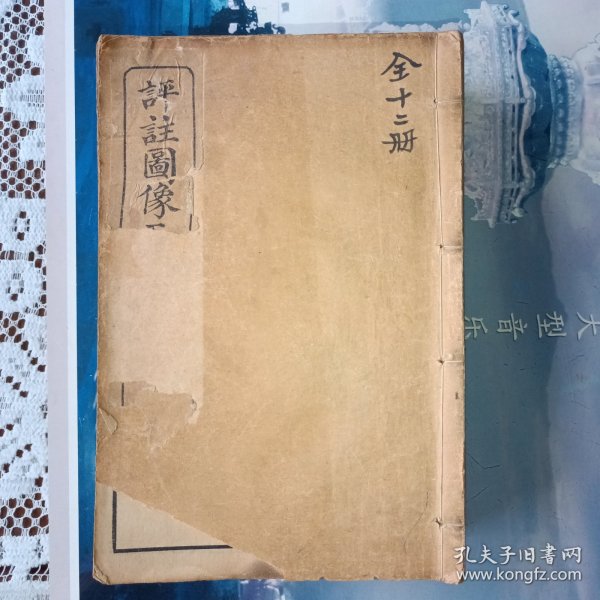 全十二册
評註圖像
大型音乐
孔夫子旧書网
www.kongfz.com